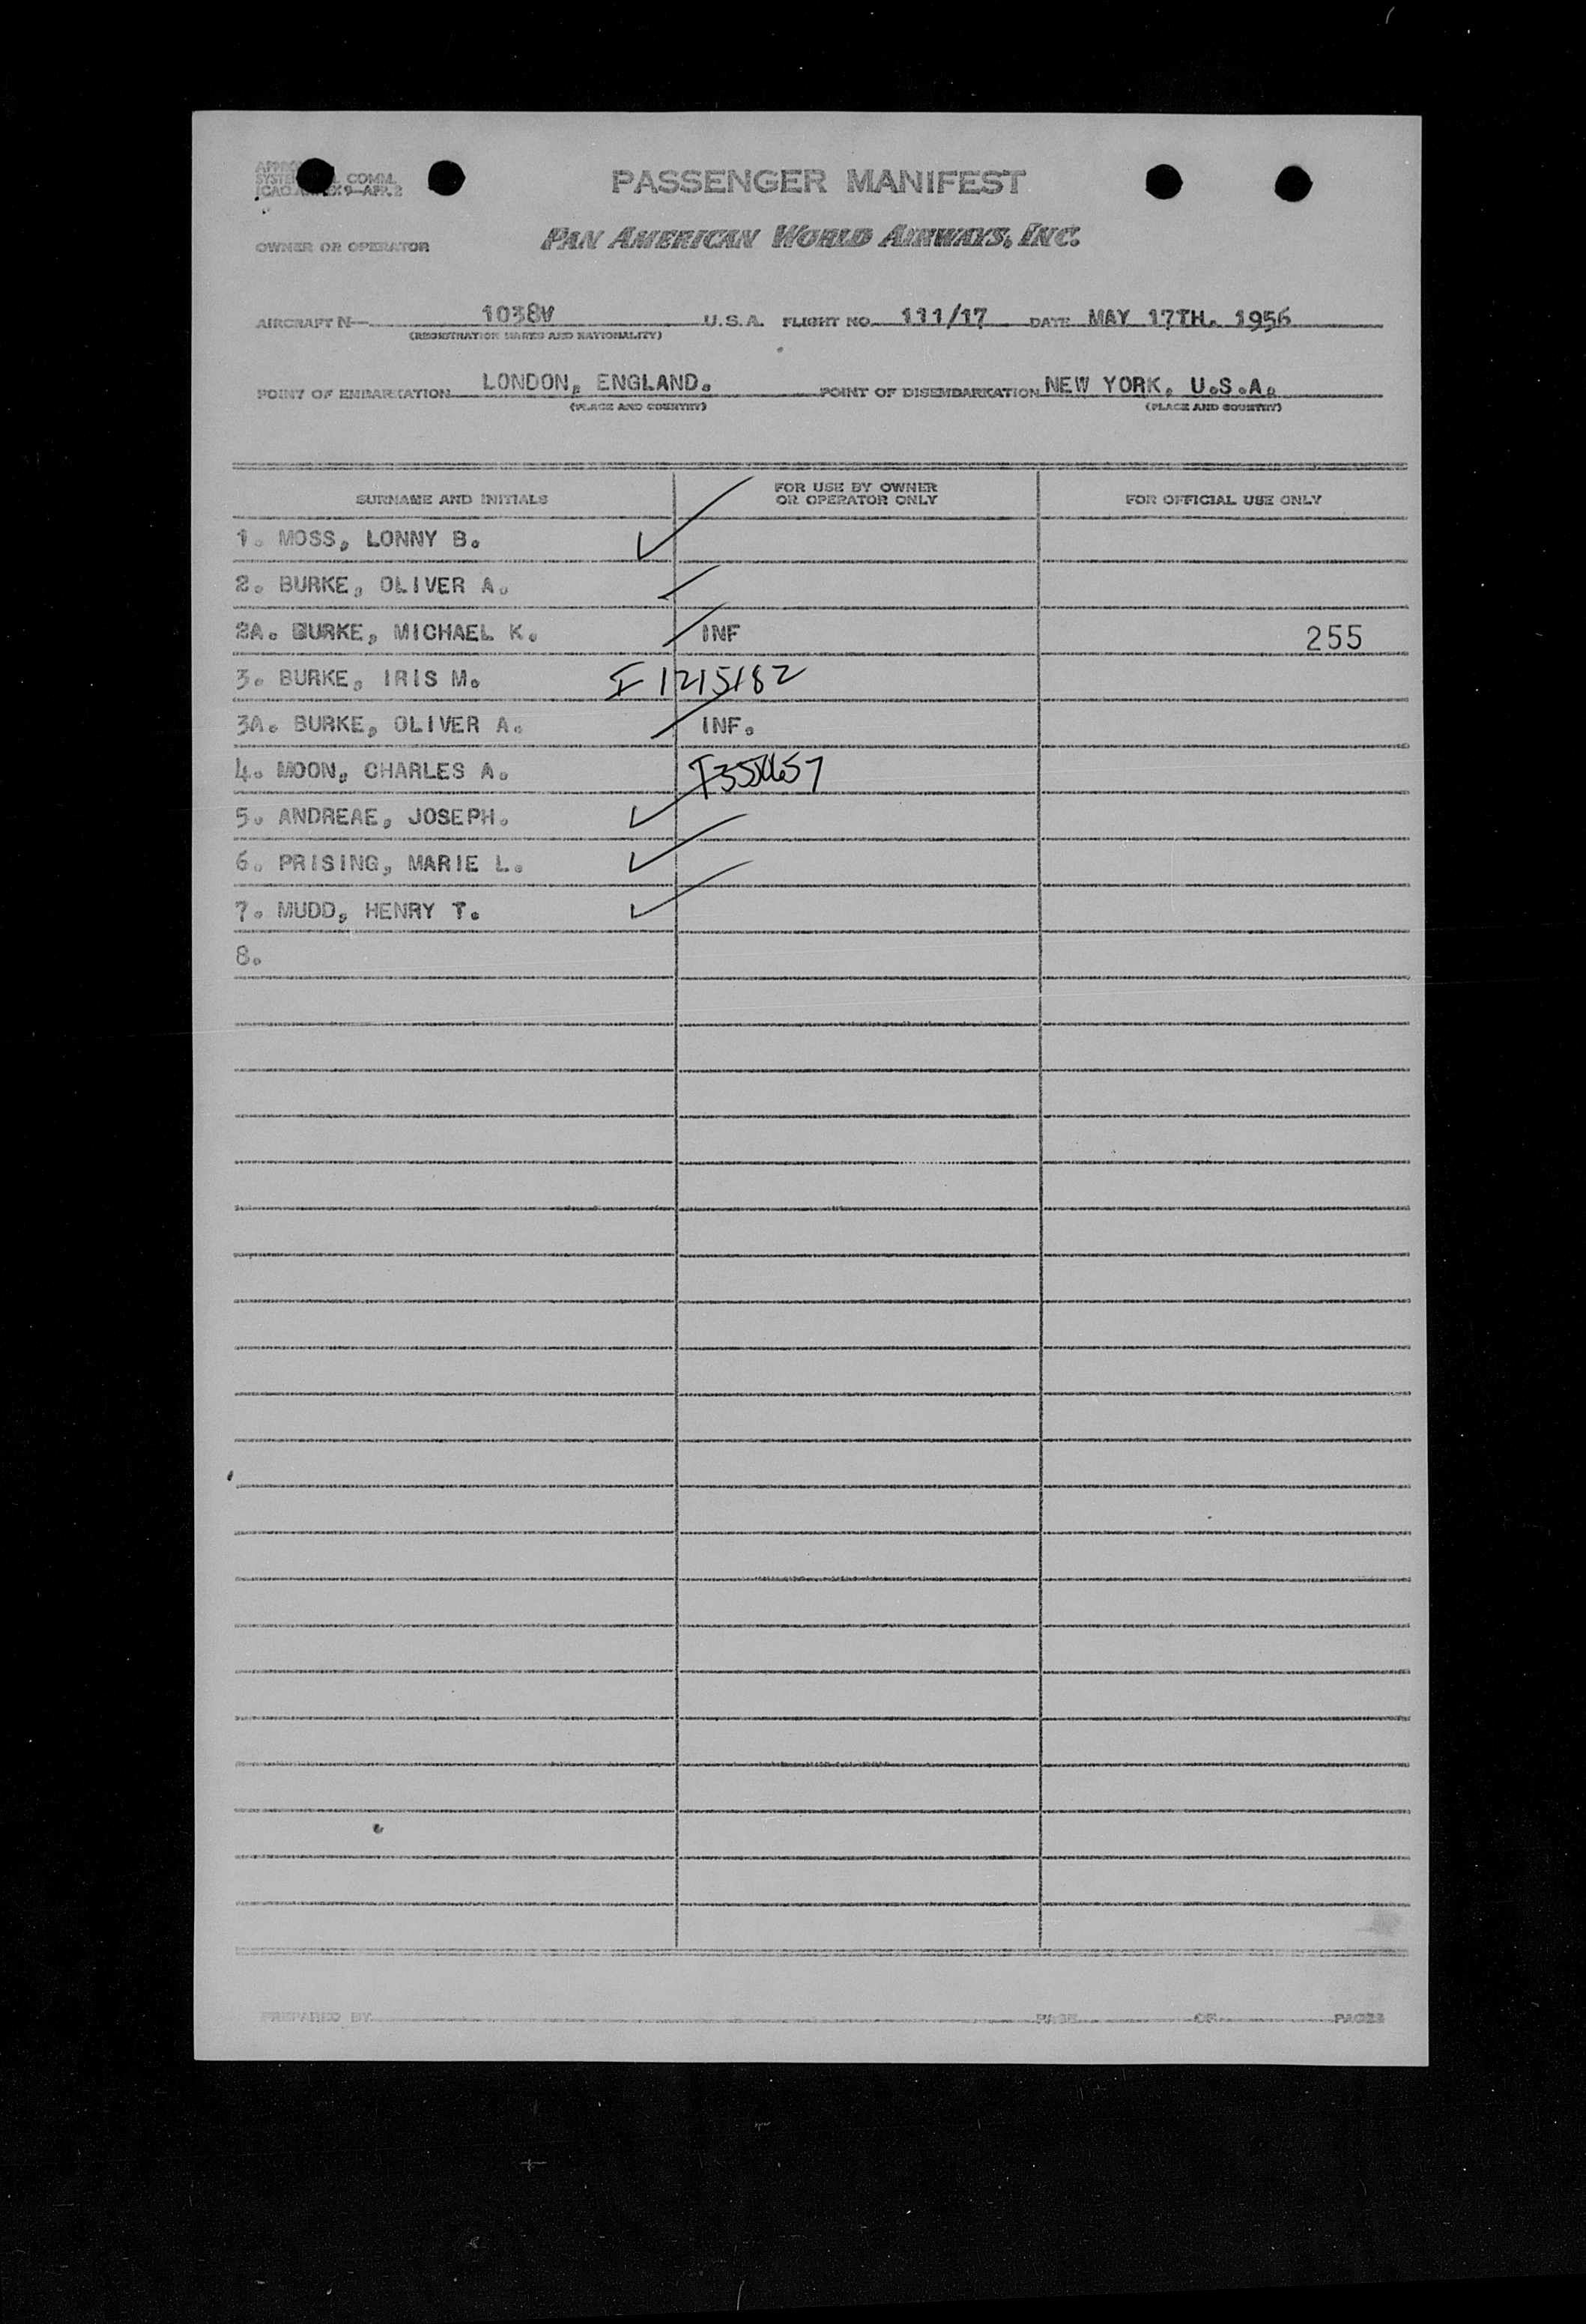 PASSENGER MANIFEST
SYSTE COMM.
ICAO ANNEX 9—APR. 2
OWNER OR OPERATOR
PAN AMERICAN WORLD AIRWAYS, INC.
AIRCRAFT N— 1038V U.S.A. FLIGHT NO. 111/17 DATE MAY 17TH. 1956
(REGISTRATION MARKS AND NATIONALITY)
POINT OF EMBARKATION LONDON, ENGLAND. POINT OF DISEMBARKATION NEW YORK, U.S.A.
(PLACE AND COUNTRY) (PLACE AND COUNTRY)
SURNAME AND INITIALS FOR USE BY OWNER OR OPERATOR ONLY FOR OFFICIAL USE ONLY
1. MOSS, LONNY B.
2. BURKE, OLIVER A.
2A. BURKE, MICHAEL K. INF 255
3. BURKE, IRIS M. I 1215182
3A. BURKE, OLIVER A. INF.
4. MOON, CHARLES A.
5. ANDREAE, JOSEPH.
6. PRISING, MARIE L.
7. MUDD, HENRY T.
8.
PREPARED BY PAGE OF PAGES